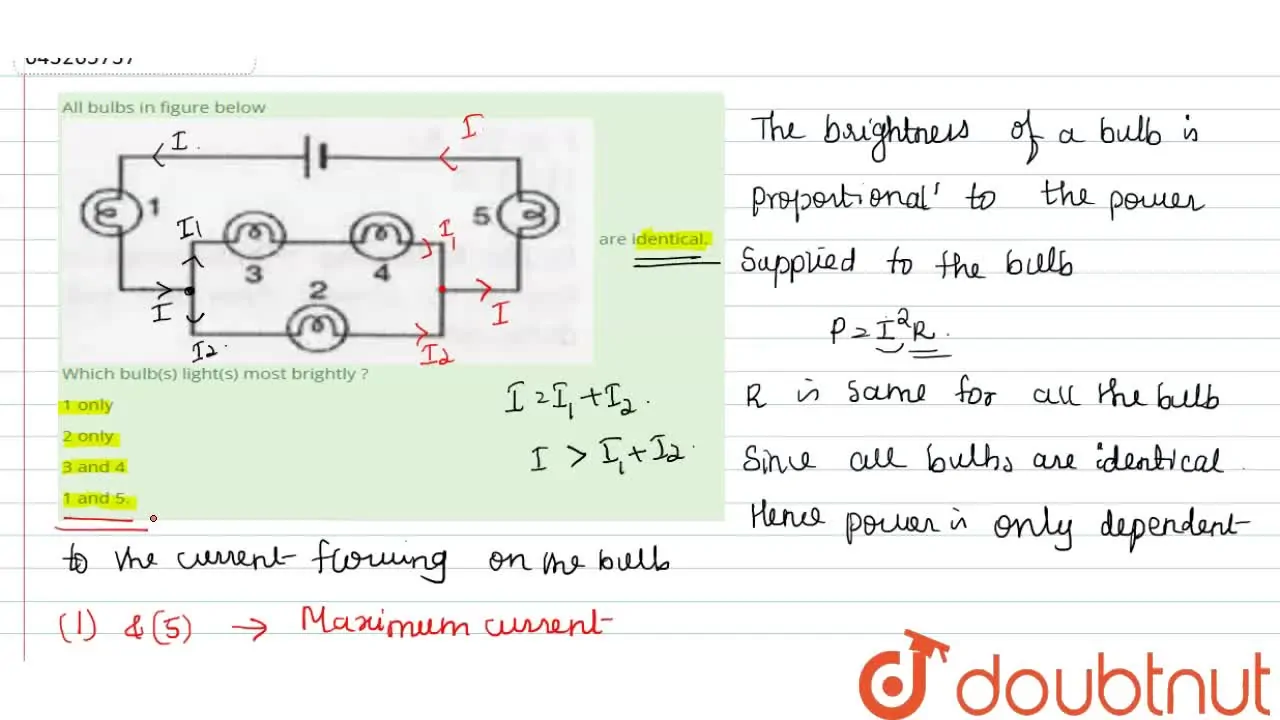 All bulbs in figure below
I
I
1
5
I1
I1
3
4
are identical.
2
I
I
I2
I2
Which bulb(s) light(s) most brightly ?
1 only
2 only
3 and 4
1 and 5.
I = I1 + I2.
I > I1 + I2.
The brightness of a bulb is
proportional to the power
Supplied to the bulb
P = I²R.
R is same for all the bulb
Since all bulbs are identical.
Hence power is only dependent
to the current flowing on the bulb
(1) & (5) → Maximum current
doubtnut